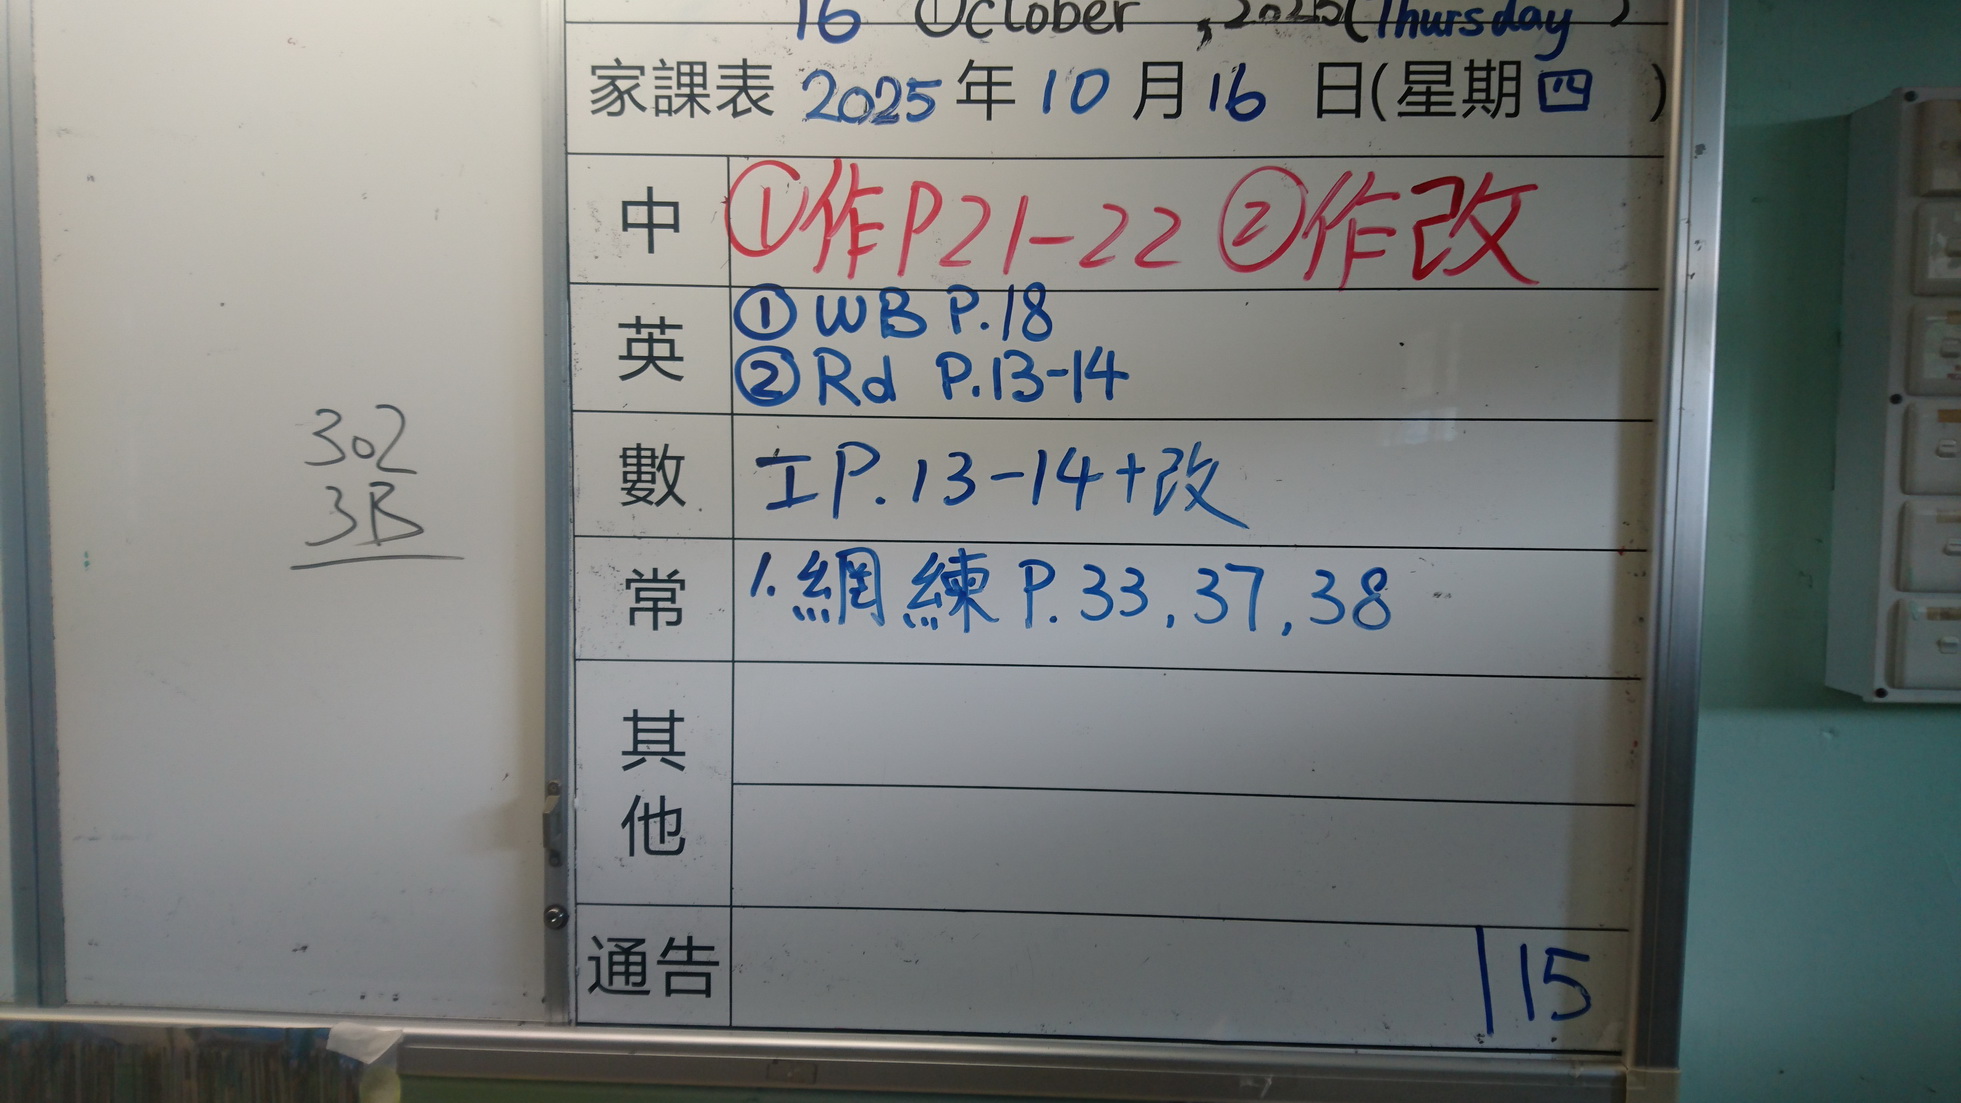 16 October, 2025 (Thursday)
家課表 2025年 10 月 16 日(星期四)
中 ①作P21-22 ②作改
英 ① WB P.18
② Rd P.13-14
數 工P.13-14+改
常 1.網練P.33,37,38
其他
通告 | 15
302
3B